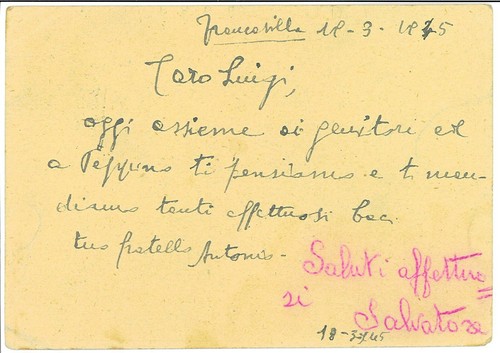 Francavilla 18-3-1945
Caro Luigi,
oggi assieme ai genitori ed
a Peppino ti pensiamo e ti man-
diamo tanti affettuosi baci
tuo fratello Antonio-
Saluti affettuo=
si
Salvatore
18-3-45